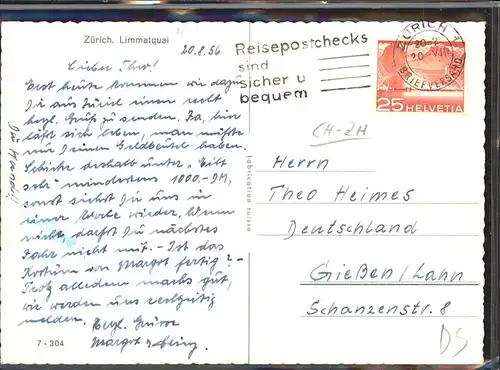 Zürich. Limmatquai
20.8.56
Lieber Theo!
Erst heute kommen wir dazu,
Dir aus Zürich einen recht
herzl. Gruß zu senden. Ja, hier
läßt sich leben, man müßte
nur Deinen Geldbeutel haben.
Schicke deshalb unter "Eilt
sehr" mindestens 1000.- DM,
sonst siehst Du uns in
einer Woche wieder. Wenn
nicht, darfst Du nächstes
Jahr nicht mit. - Ist das
Kostüm von Margot fertig? -
Trotz alledem machs gut,
wir werden uns rechtzeitig
melden.
Herzl. Grüsse
Margot Heinz
7 - 304
fabrication suisse
Reisepostchecks
sind
sicher u
bequem
ZÜRICH 1
20
BRIEFVERSAND
25 HELVETIA
CH-ZH
Herrn
Theo Heimes
Deutschland
Gießen/Lahn
Schanzenstr. 8
DS